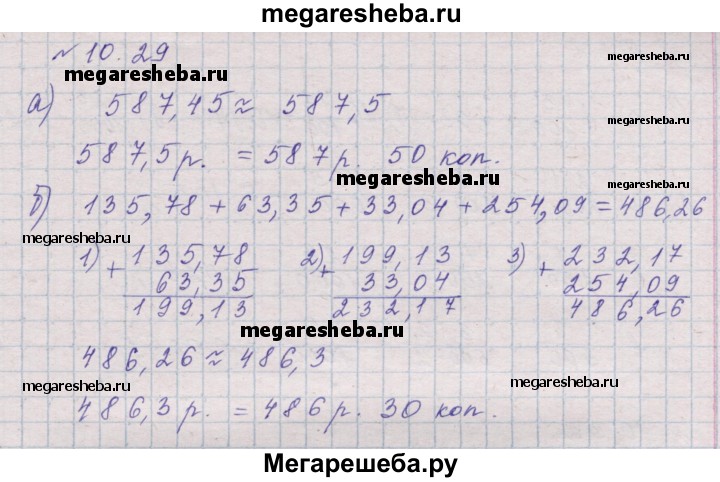 megaresheba.ru
№ 10.29
megaresheba.ru
megaresheba.ru
а) 587,45 ≈ 587,5
587,5 р. = 587 р. 50 коп.
megaresheba.ru
megaresheba.ru
б) 135,78 + 63,35 + 33,04 + 254,09 = 486,26
megaresheba.ru
megaresheba.ru
1) + 135,78 2) + 199,13 3) + 232,17
63,35 33,04 254,09
199,13 232,17 486,26
megaresheba.ru
486,26 ≈ 486,3
megaresheba.ru
megaresheba.ru
486,3 р. = 486 р. 30 коп.
Мегарешеба.ру